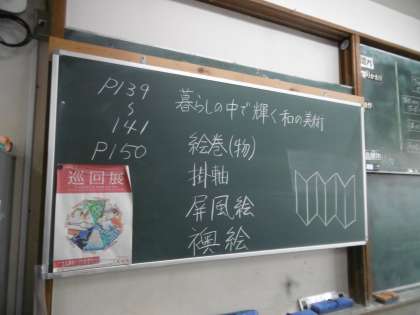 P139
〜
141
P150
暮らしの中で輝く和の美術
絵巻(物)
掛軸
屏風絵
襖絵
巡回展